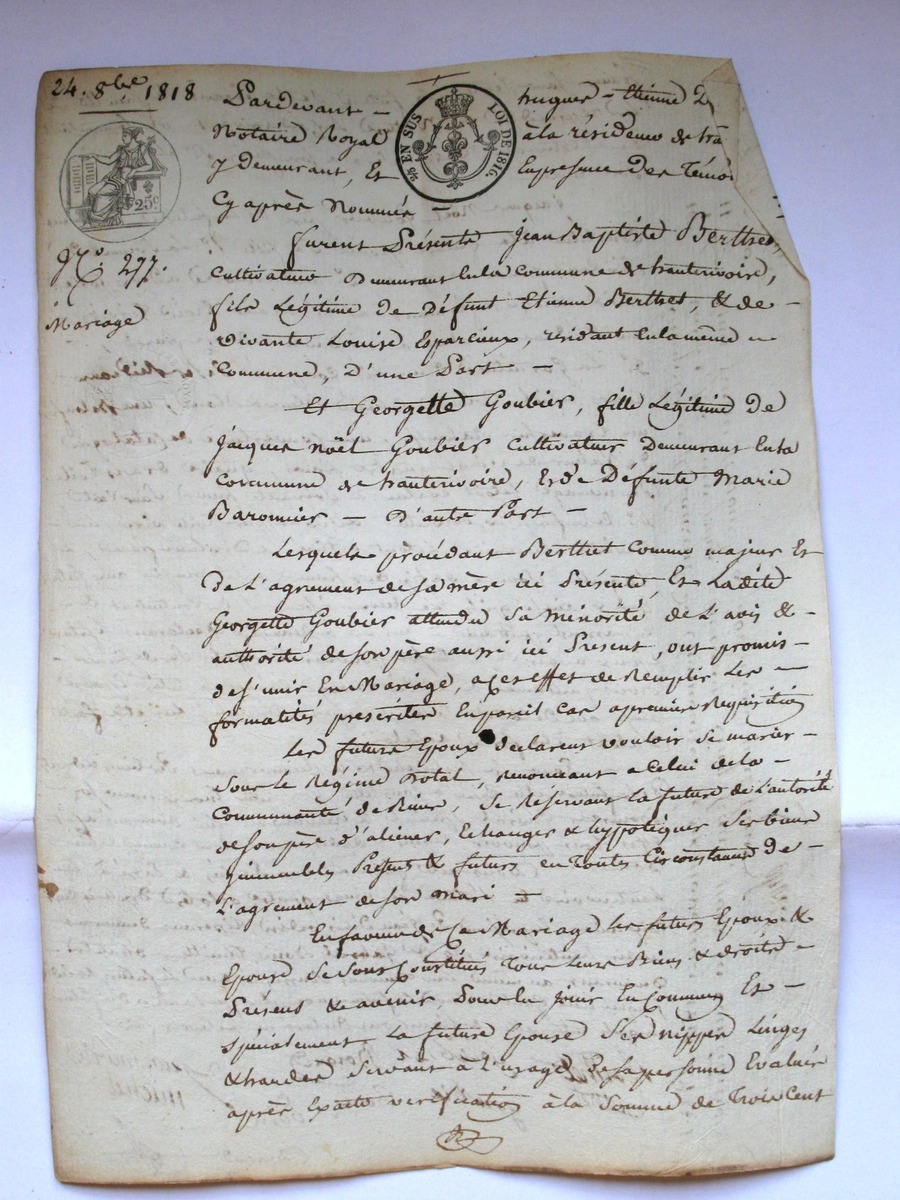 24. 8bre 1818
25 EN SUS LOI DE 1816.
25c
No. 277.
Mariage
Pardevant - hugues - Etienne
Notaire Royal à la résidence de
y Demeurant, Et En presence Des
Cy après Nommés -
furent Présents Jean Baptiste Berthet,
Cultivateur Demeurant En la Commune de hauterivoire,
fils Légitime de Défunt Etienne Berthet, & de -
vivante Louise Esparcieux, résidant En la même
Commune, D'une Part -
Et Georgette Goubier, fille Légitime De
Jacques Noël Goubier Cultivateur Demeurant En la
Commune de hauterivoire, Et de Défunte Marie
Baronnier - D'autre Part -
Lesquels procédant Berthet Comme majeur Et
De L'agrement de sa mère ici Présente, Et Ladite
Georgette Goubier attendu Sa minorité, de L'avis & -
authorité de son père aussi ici Present, ont promis -
de s'unir En Mariage, a Cet effet de Remplir Les -
formalités prescrites En pareil Cas a premiere Requisition
Les futurs Epoux declarent vouloir se marier -
Sous le Régime Dotal, Renonceant a Celui de la -
Communauté de Biens, Se Réservant la future de L'autorité
de son père d'aliéner, Echanger & hypotéquer Ses biens
jmmeubles Présents & futurs en toutes Circonstances De -
L'agrement de son mari -
En faveur de Ce Mariage les futurs Epoux &
Epouse Se Sont Constitués Tous leurs Biens & droits -
Présens & avenir, Pour En jouir En Commun Et -
spécialement La future Epouse Ses nippes Linges
& hardes Servant à L'usage De sa personne Evalués
après Exacte verification à la Somme de Trois Cent